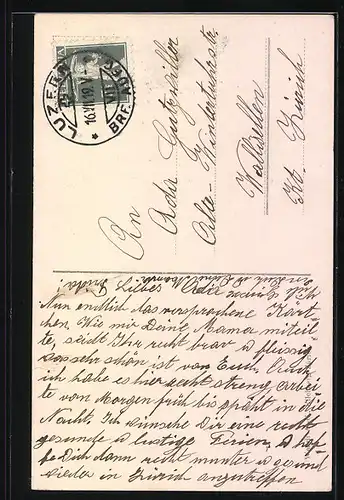 LUZERN
16.VII.19.V-
BRF.
HELVETIA
An
Adr Gutzwiller
Alte-Winterthurstr.
Wallisellen
Kt. Zürich
Liebes
Nun endlich das versprochene Kärt-
chen. Wie mir Deine Mama mitteil-
te, seidt Ihr recht brav u fleissig
was sehr schön ist von Euch. Auch
ich habe es hier recht streng, arbei-
te von Morgen früh bis späht in die
Nacht. Ich wünsche Dir eine recht
gesunde u lustige Ferien, u hof-
fe Dich dann recht munter u gesund
wieder in Zürich anzutreffen
Frida!